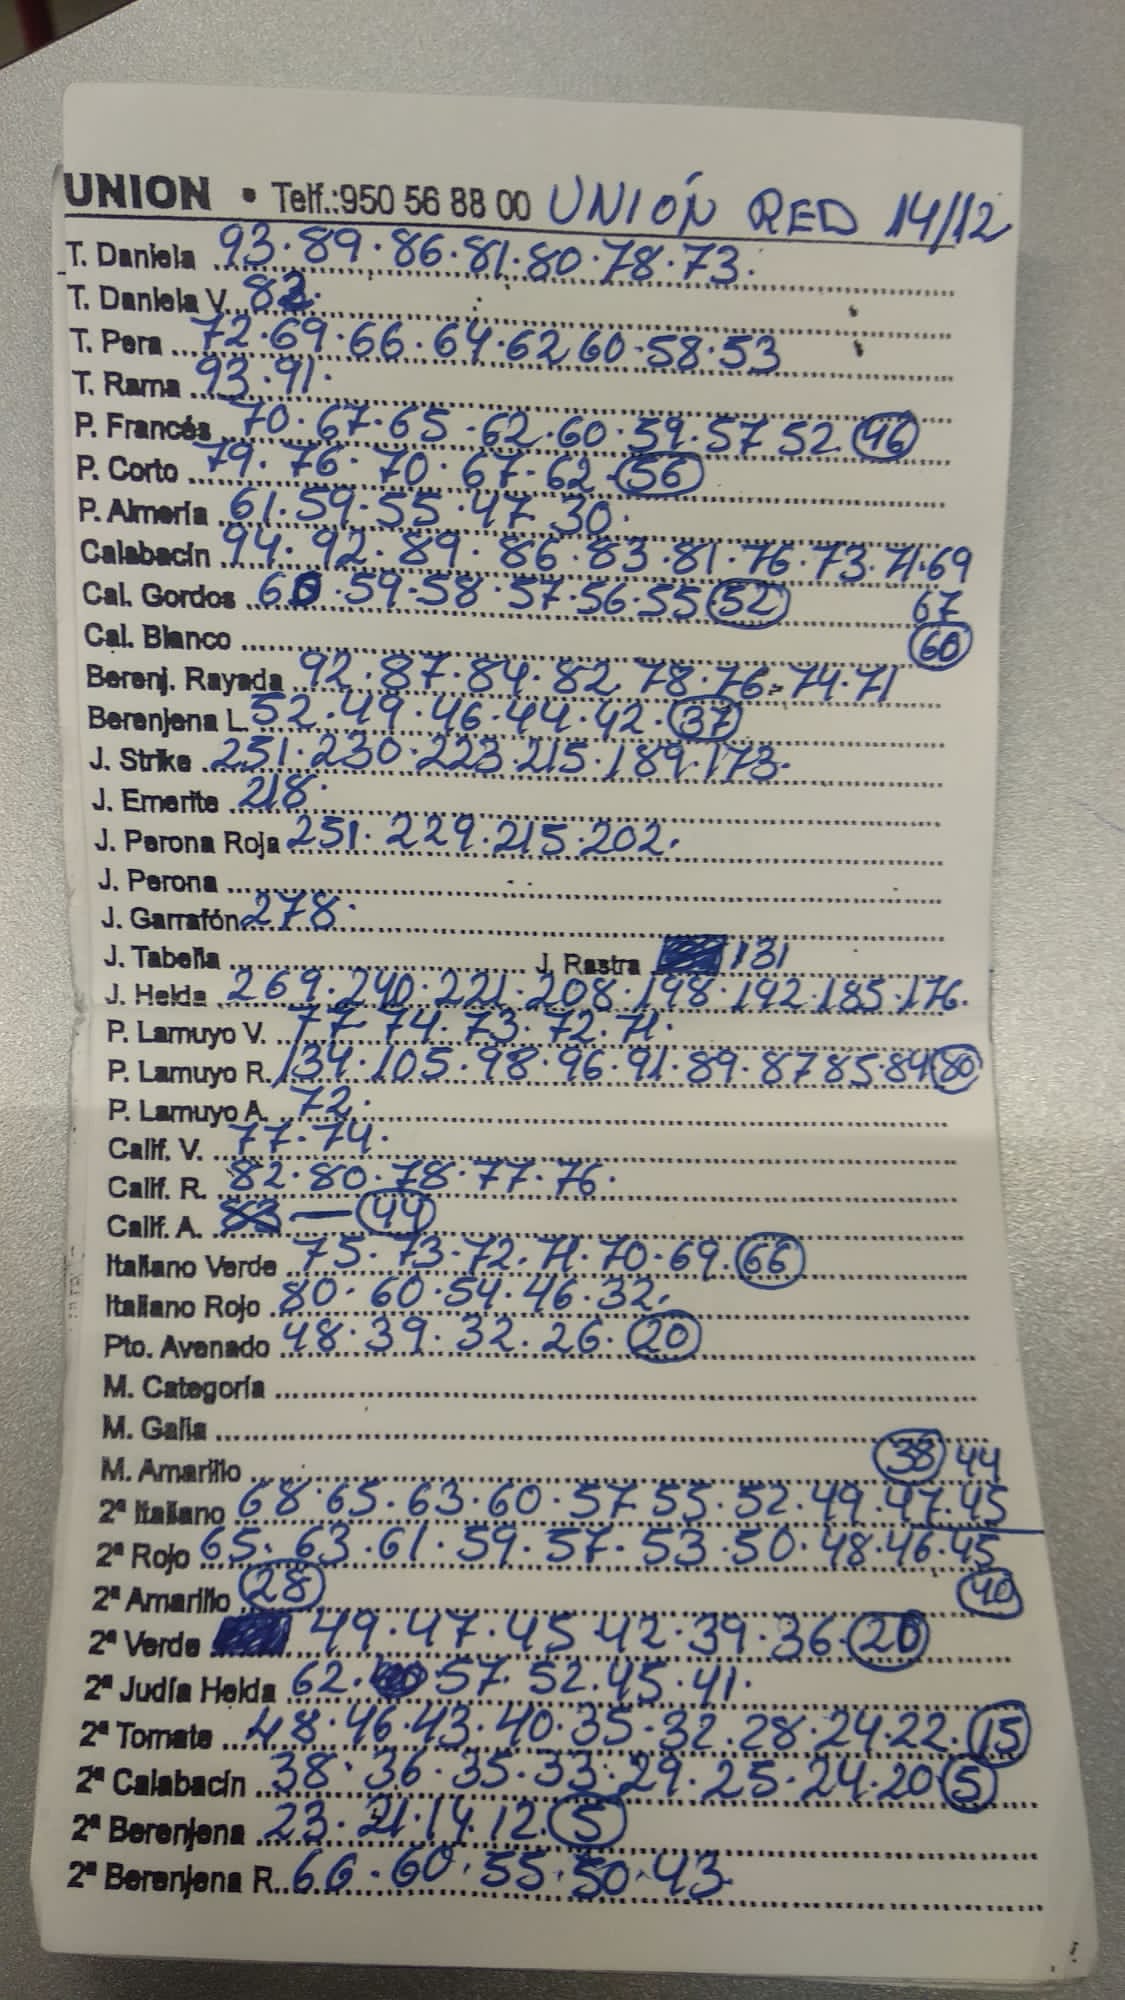 UNION • Telf.:950 56 88 00 UNIÓN RED 14/12
T. Daniela 93.89.86.81.80.78.73.
T. Daniela V. 82.
T. Pera 72.69.66.64.62 60.58.53
T. Rama 93.91.
P. Francés 70.67.65.62.60.59.57 52 46
P. Corto 79.76.70.67.62.56
P. Almería 61.59.55.47 30.
Calabacín 94.92.89.86.83.81.76.73.71.69
Cal. Gordos 60.59.58.57.56.55 52 67
Cal. Blanco 60
Berenj. Rayada 92.87.84.82 78.76.74.71
Berenjena L. 52.49.46.44.42.37
J. Strike 251.230.223.215.189.173.
J. Emerite 218.
J. Perona Roja 251.229.215.202.
J. Perona
J. Garrafón 278.
J. Tabella J. Rastra 131
J. Helda 269.240.221.208.198.192.185.176.
P. Lamuyo V. 77.74.73.72.71.
P. Lamuyo R. 134.105.98.96.91.89.87 85.84 80
P. Lamuyo A. 72.
Calif. V. 77.74.
Calif. R. 82.80.78.77.76.
Calif. A. 83 — 44
Italiano Verde 75.73.72.71.70.69.66
Italiano Rojo 80.60.54.46.32.
Pto. Avenado 48.39.32.26.20
M. Categoría
M. Galia
M. Amarillo 38 44
2ª Italiano 68.65.63.60.57 55.52.49.47.45
2ª Rojo 65.63.61.59.57.53.50.48.46.45
2ª Amarillo 28 40
2ª Verde 49.47.45.42.39.36.20
2ª Judía Helda 62.57.52.45.41.
2ª Tomate 48.46.43.40.35.32.28.24.22.15
2ª Calabacín 38.36.35.33.29.25.24.20 5
2ª Berenjena 23.21.14.12.5
2ª Berenjena R. 66.60.55.50.43.